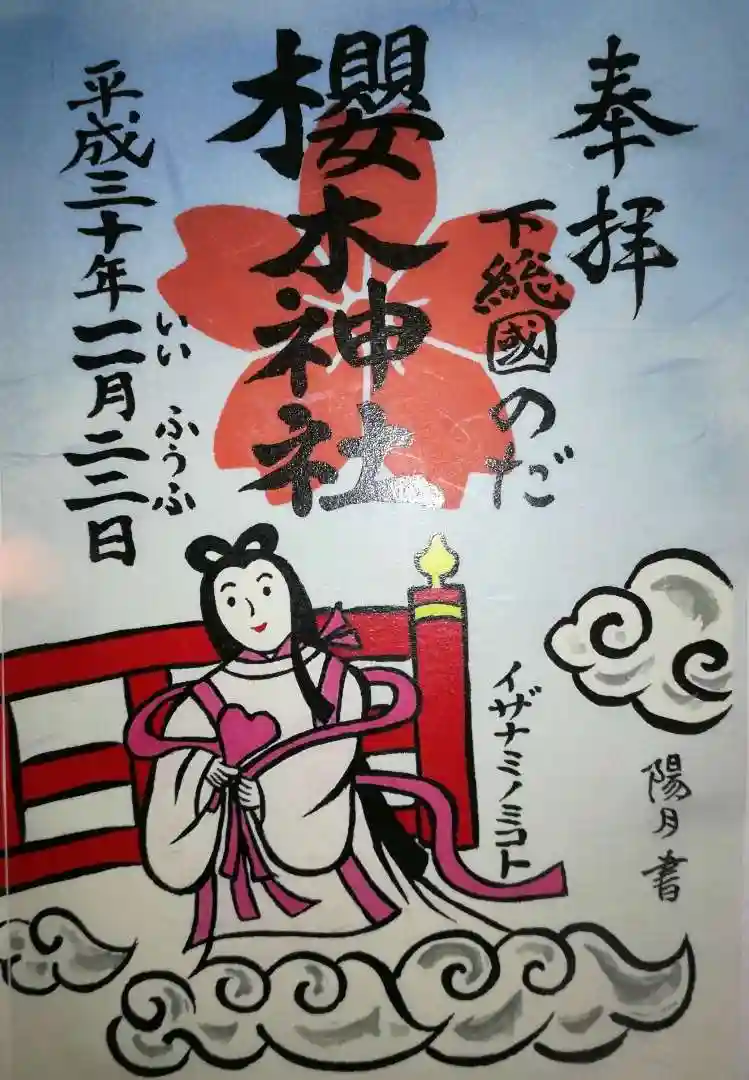 奉拝
下総國のだ
櫻木神社
いい ふうふ
平成三十年一一月二二日
イザナミノミコト
陽月書